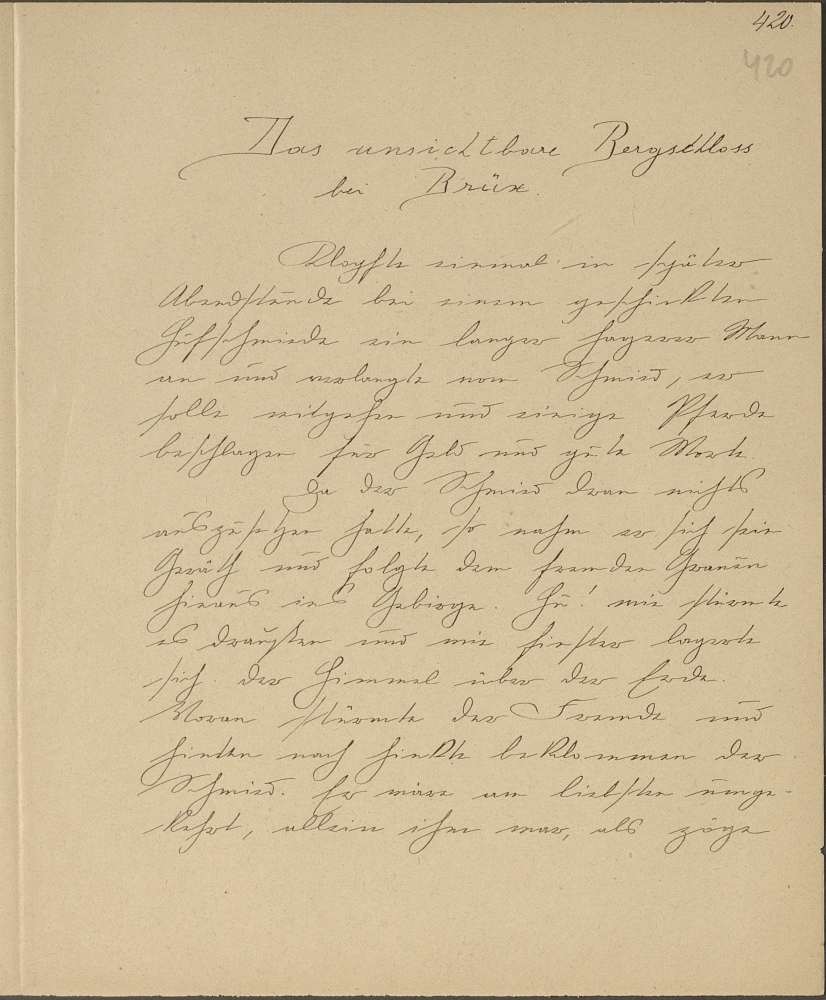 420.
420
Das unsichtbare Bergschloss
bei Brüx.
Klopfte einmal in später
Abendstunde bei einem geschickten
Hufschmiede ein langer hagerer Mann
an und verlangte vom Schmied, er
solle mitgehen und einige Pferde
beschlagen für Geld und gute Worte.
Da der Schmied dran nichts
auszusetzen hatte, so nahm er sich sein
Geräth und folgte dem fremden Grauen
hinaus ins Gebirge. Hu! wie stürmte
es draußen und wie finster lagerte
sich der Himmel über der Erde.
Voran stürmte der Fremde und
hinten nach hinkte beklommen der
Schmied. Er wäre am liebsten umge-
kehrt, allein ihm war, als zöge